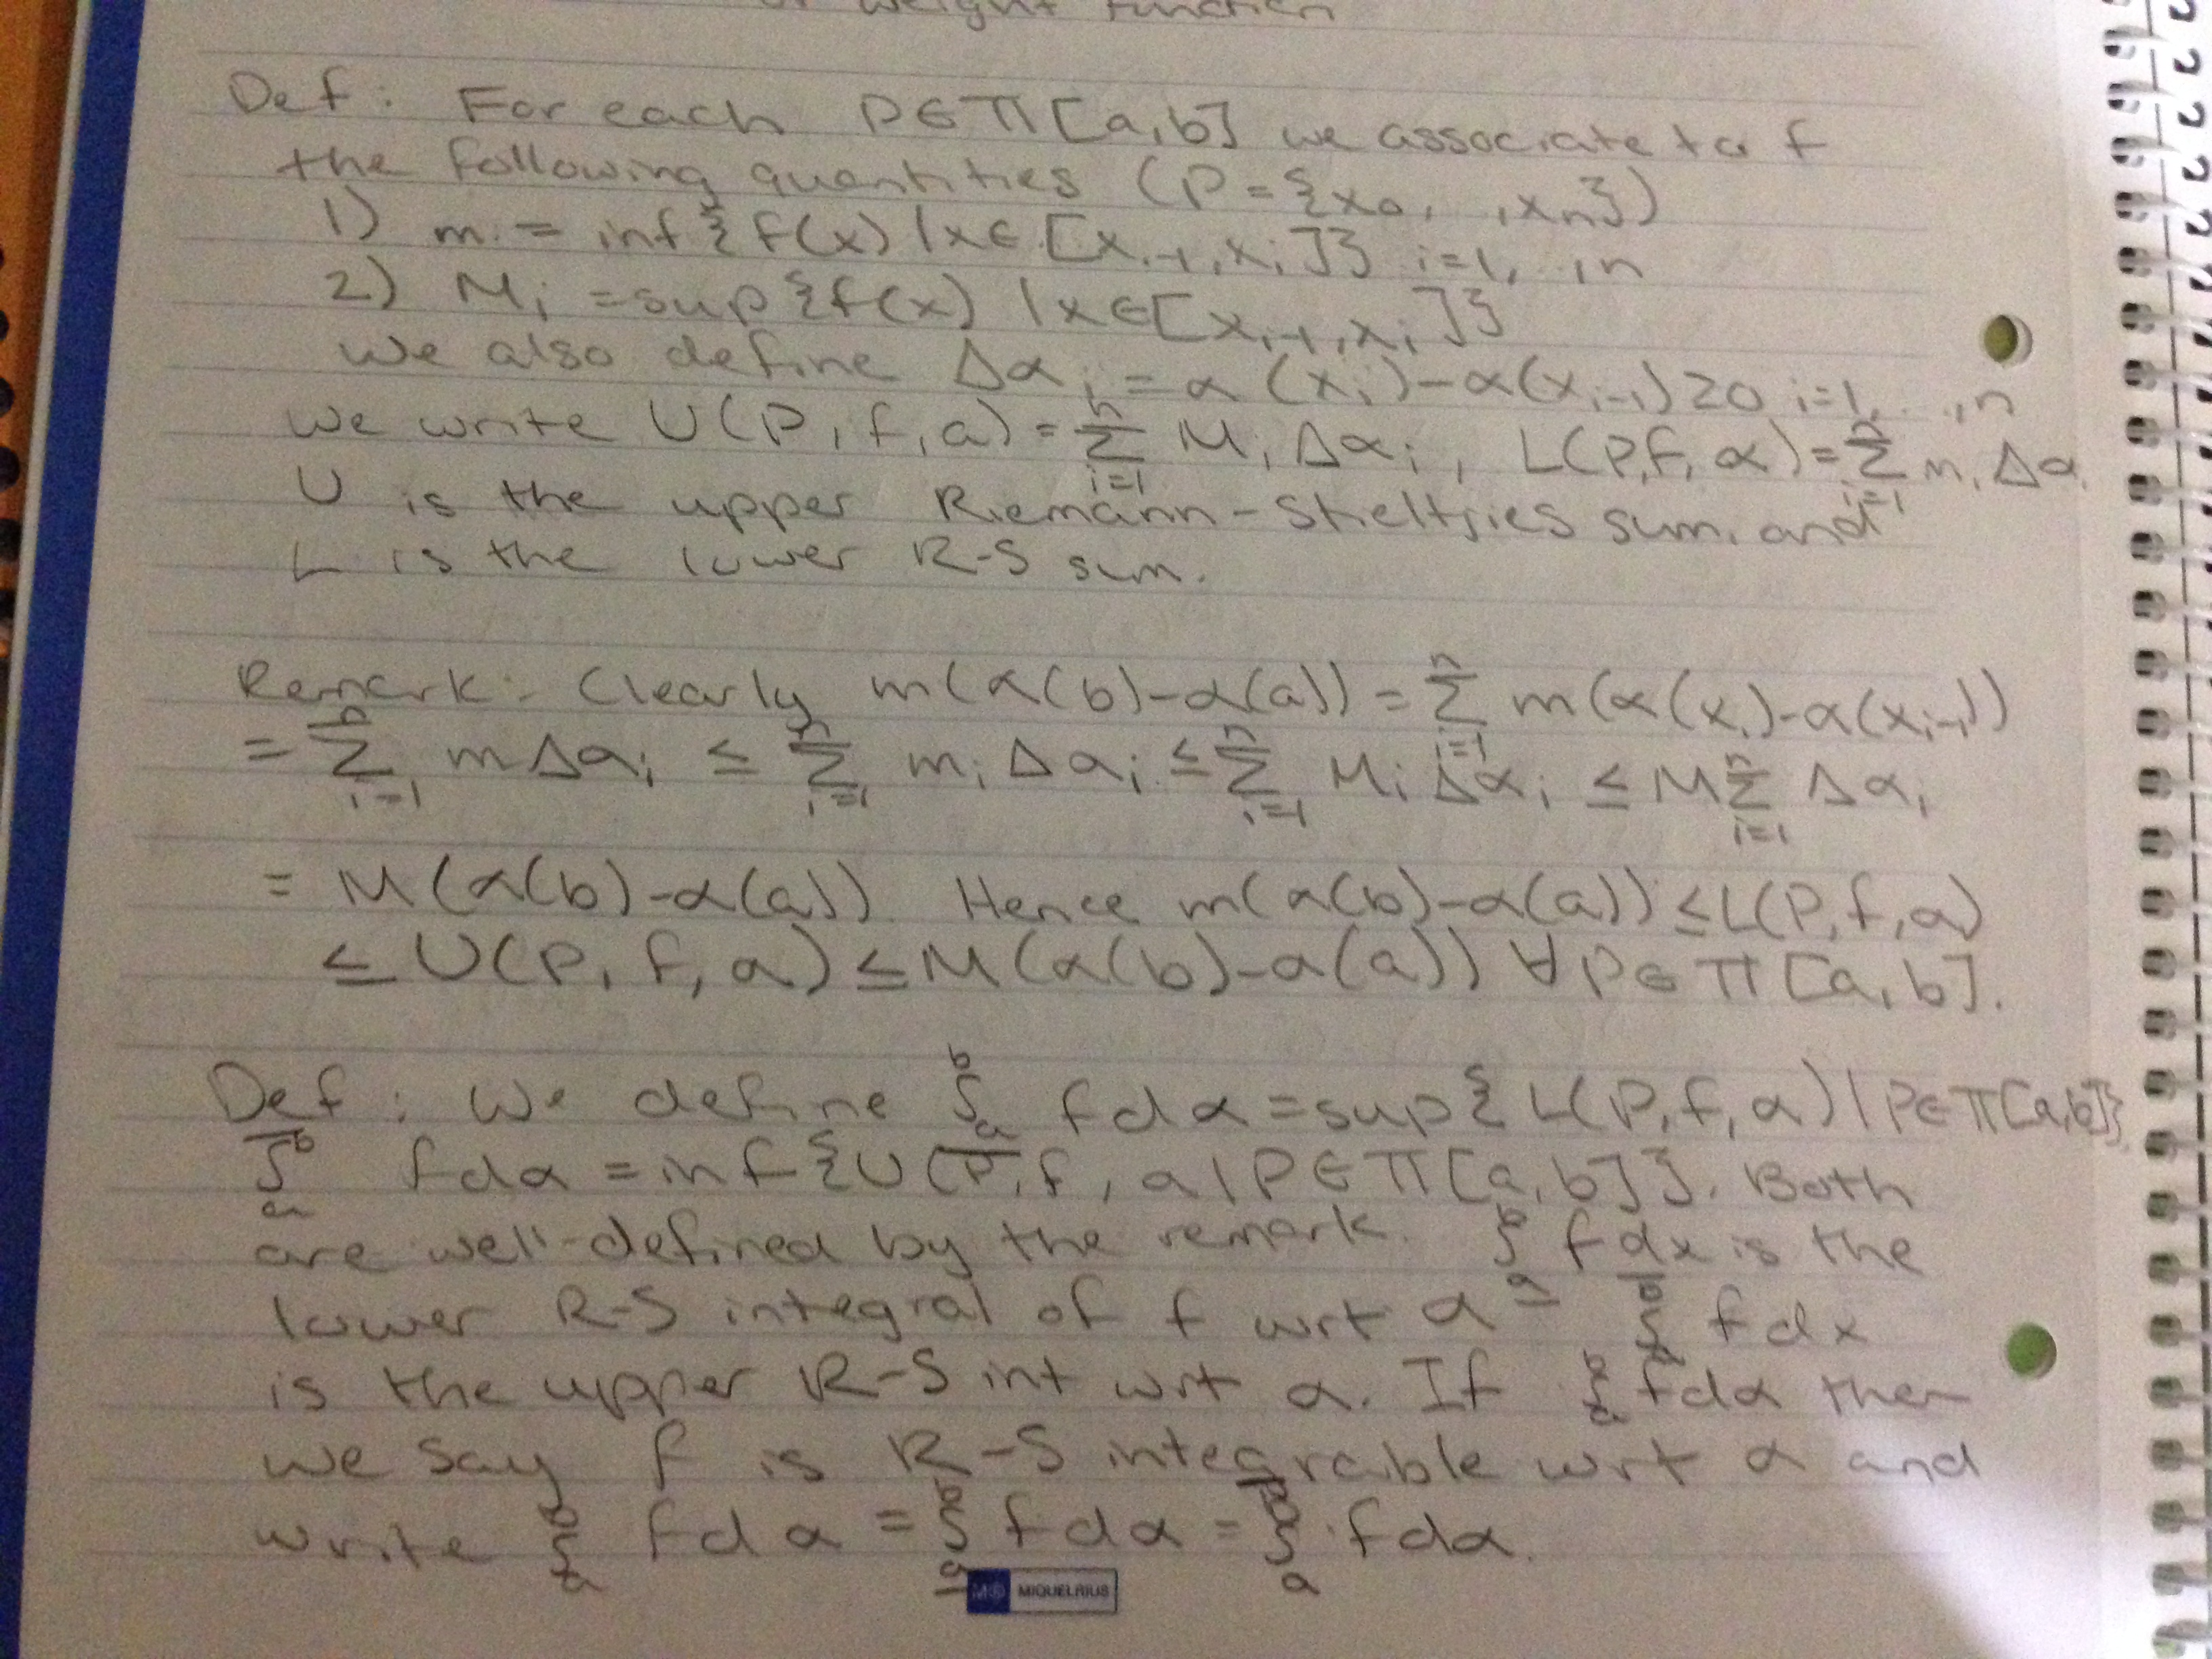 or weight function
Def: For each P∈Π[a,b] we associate to f
the following quantities (P={x₀, ,xₙ})
1) mᵢ = inf{f(x) |x∈ [xᵢ₋₁,xᵢ]} i=1, ,n
2) Mᵢ =sup{f(x) |x∈[xᵢ₋₁,xᵢ]}
we also define Δαᵢ = α(xᵢ)-α(xᵢ₋₁)≥0 i=1, ..,n
we write U(P, f,α) = \sum_{i=1}^{n} Mᵢ Δαᵢ, L(P,f,α)= \sum_{i=1}^{n} mᵢ Δαᵢ
U is the upper Riemann-Stieltjies sum, and
L is the lower R-S sum.
Remark: Clearly m(α(b)-α(a)) = \sum_{i=1}^{n} m(α(xᵢ)-α(xᵢ₋₁))
= \sum_{i=1}^{n} mΔαᵢ ≤ \sum_{i=1}^{n} mᵢ Δαᵢ ≤ \sum_{i=1}^{n} Mᵢ Δαᵢ ≤ M \sum_{i=1}^{n} Δαᵢ
= M(α(b)-α(a)) Hence m(α(b)-α(a)) ≤L(P,f,α)
≤ U(P, f, α) ≤ M(α(b)-α(a)) ∀P∈Π[a,b].
Def: We define \underline{∫}_a^b fdα =sup{L(P,f,α)|P∈Π[a,b]},
\overline{∫}_a^b fdα = inf{U(P,f,α|P∈Π[a,b]}. Both
are well-defined by the remark. \underline{∫}_a^b fdx is the
lower R-S integral of f wrt α \overline{∫}_a^b fdx
is the upper R-S int wrt α. If ∫_a^b fdα then
we say f is R-S integraible wrt α and
write ∫_a^b fdα = \underline{∫}_a^b fdα = \overline{∫}_a^b fdα.
MIQUELRIUS